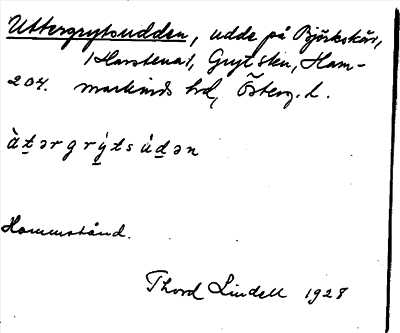 Uttergrytsudden, udde på Björkskär,
/Harstena/, Gryts skn, Ham-
204. markinds hd, Österg. l.
ὰt̲ərgrý̲t̲súd̲ən
Hammarstånd.
Thord Lindell 1928